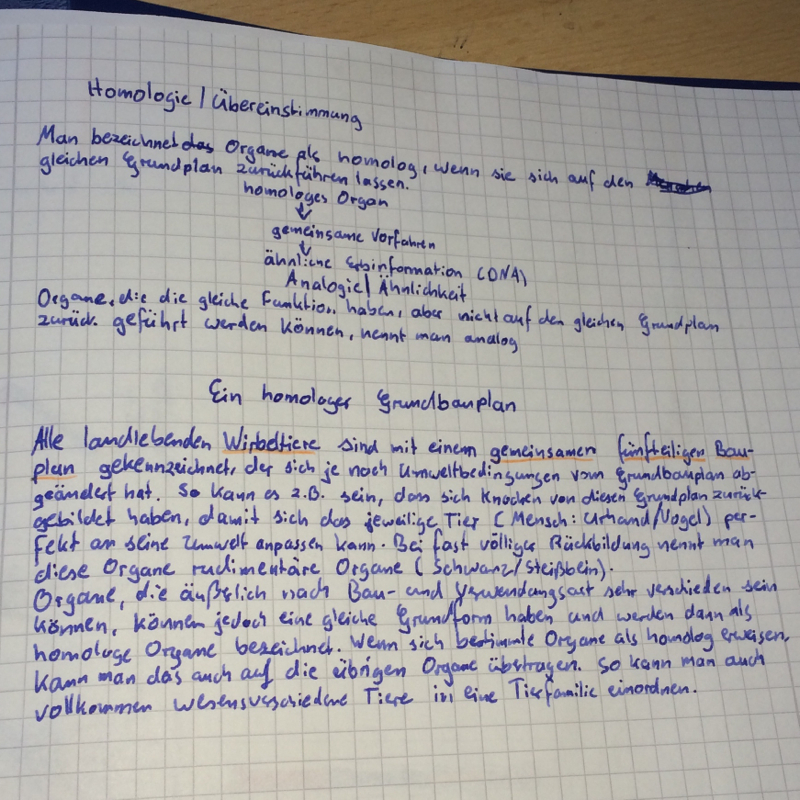 Homologie / Übereinstimmung
Man bezeichnet das Organe als homolog, wenn sie sich auf den
gleichen Grundplan zurückführen lassen.
homologes Organ
↓
gemeinsame Vorfahren
↓
ähnliche Erbinformation (DNA)
Analogie / Ähnlichkeit
Organe, die die gleiche Funktion haben, aber nicht auf den gleichen Grundplan
zurück geführt werden können, nennt man analog
Ein homologer Grundbauplan
Alle landlebenden Wirbeltiere sind mit einem gemeinsamen fünfteiligen Bau-
plan gekennzeichnet, der sich je nach Umweltbedingungen vom Grundbauplan ab-
geändert hat. So kann es z.B. sein, dass sich Knochen von diesen Grundplan zurück-
gebildet haben, damit sich das jeweilige Tier (Mensch: Urhand/Vogel) per-
fekt an seine Umwelt anpassen kann. Bei fast völliger Rückbildung nennt man
diese Organe rudimentäre Organe (Schwanz/Steißbein).
Organe, die äußerlich nach Bau- und Verwendungsart sehr verschieden sein
können, können jedoch eine gleiche Grundform haben und werden dann als
homologe Organe bezeichnet. Wenn sich bestimmte Organe als homolog erweisen,
kann man das auch auf die übrigen Organe übertragen. So kann man auch
vollkommen wesensverschiedene Tiere in eine Tierfamilie einordnen.